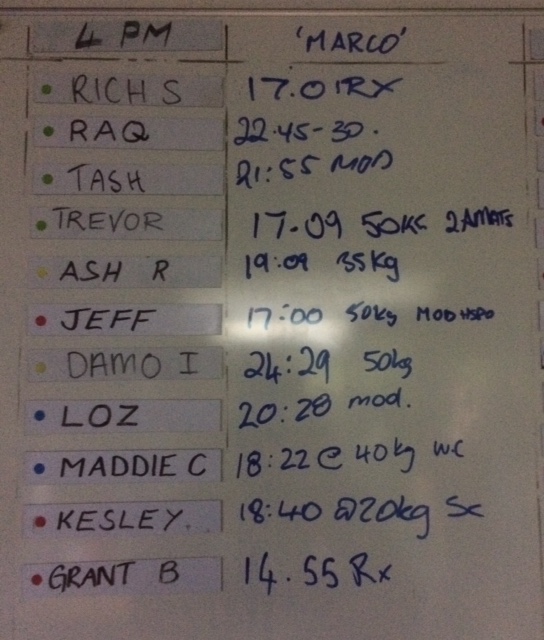 4 PM 'MARCO'
RICH S 17.01 RX
RAQ 22.45-30.
TASH 21:55 MOD
TREVOR 17-09 50KG 2AMATS
ASH R 19:09 35kg
JEFF 17:00 50kg MOD HSPU
DAMO I 24:29 50kg
LOZ 20:28 mod.
MADDIE C 18:22 @ 40kg WC
KESLEY. 18:40 @20kg Sc
GRANT B 14.55 Rx